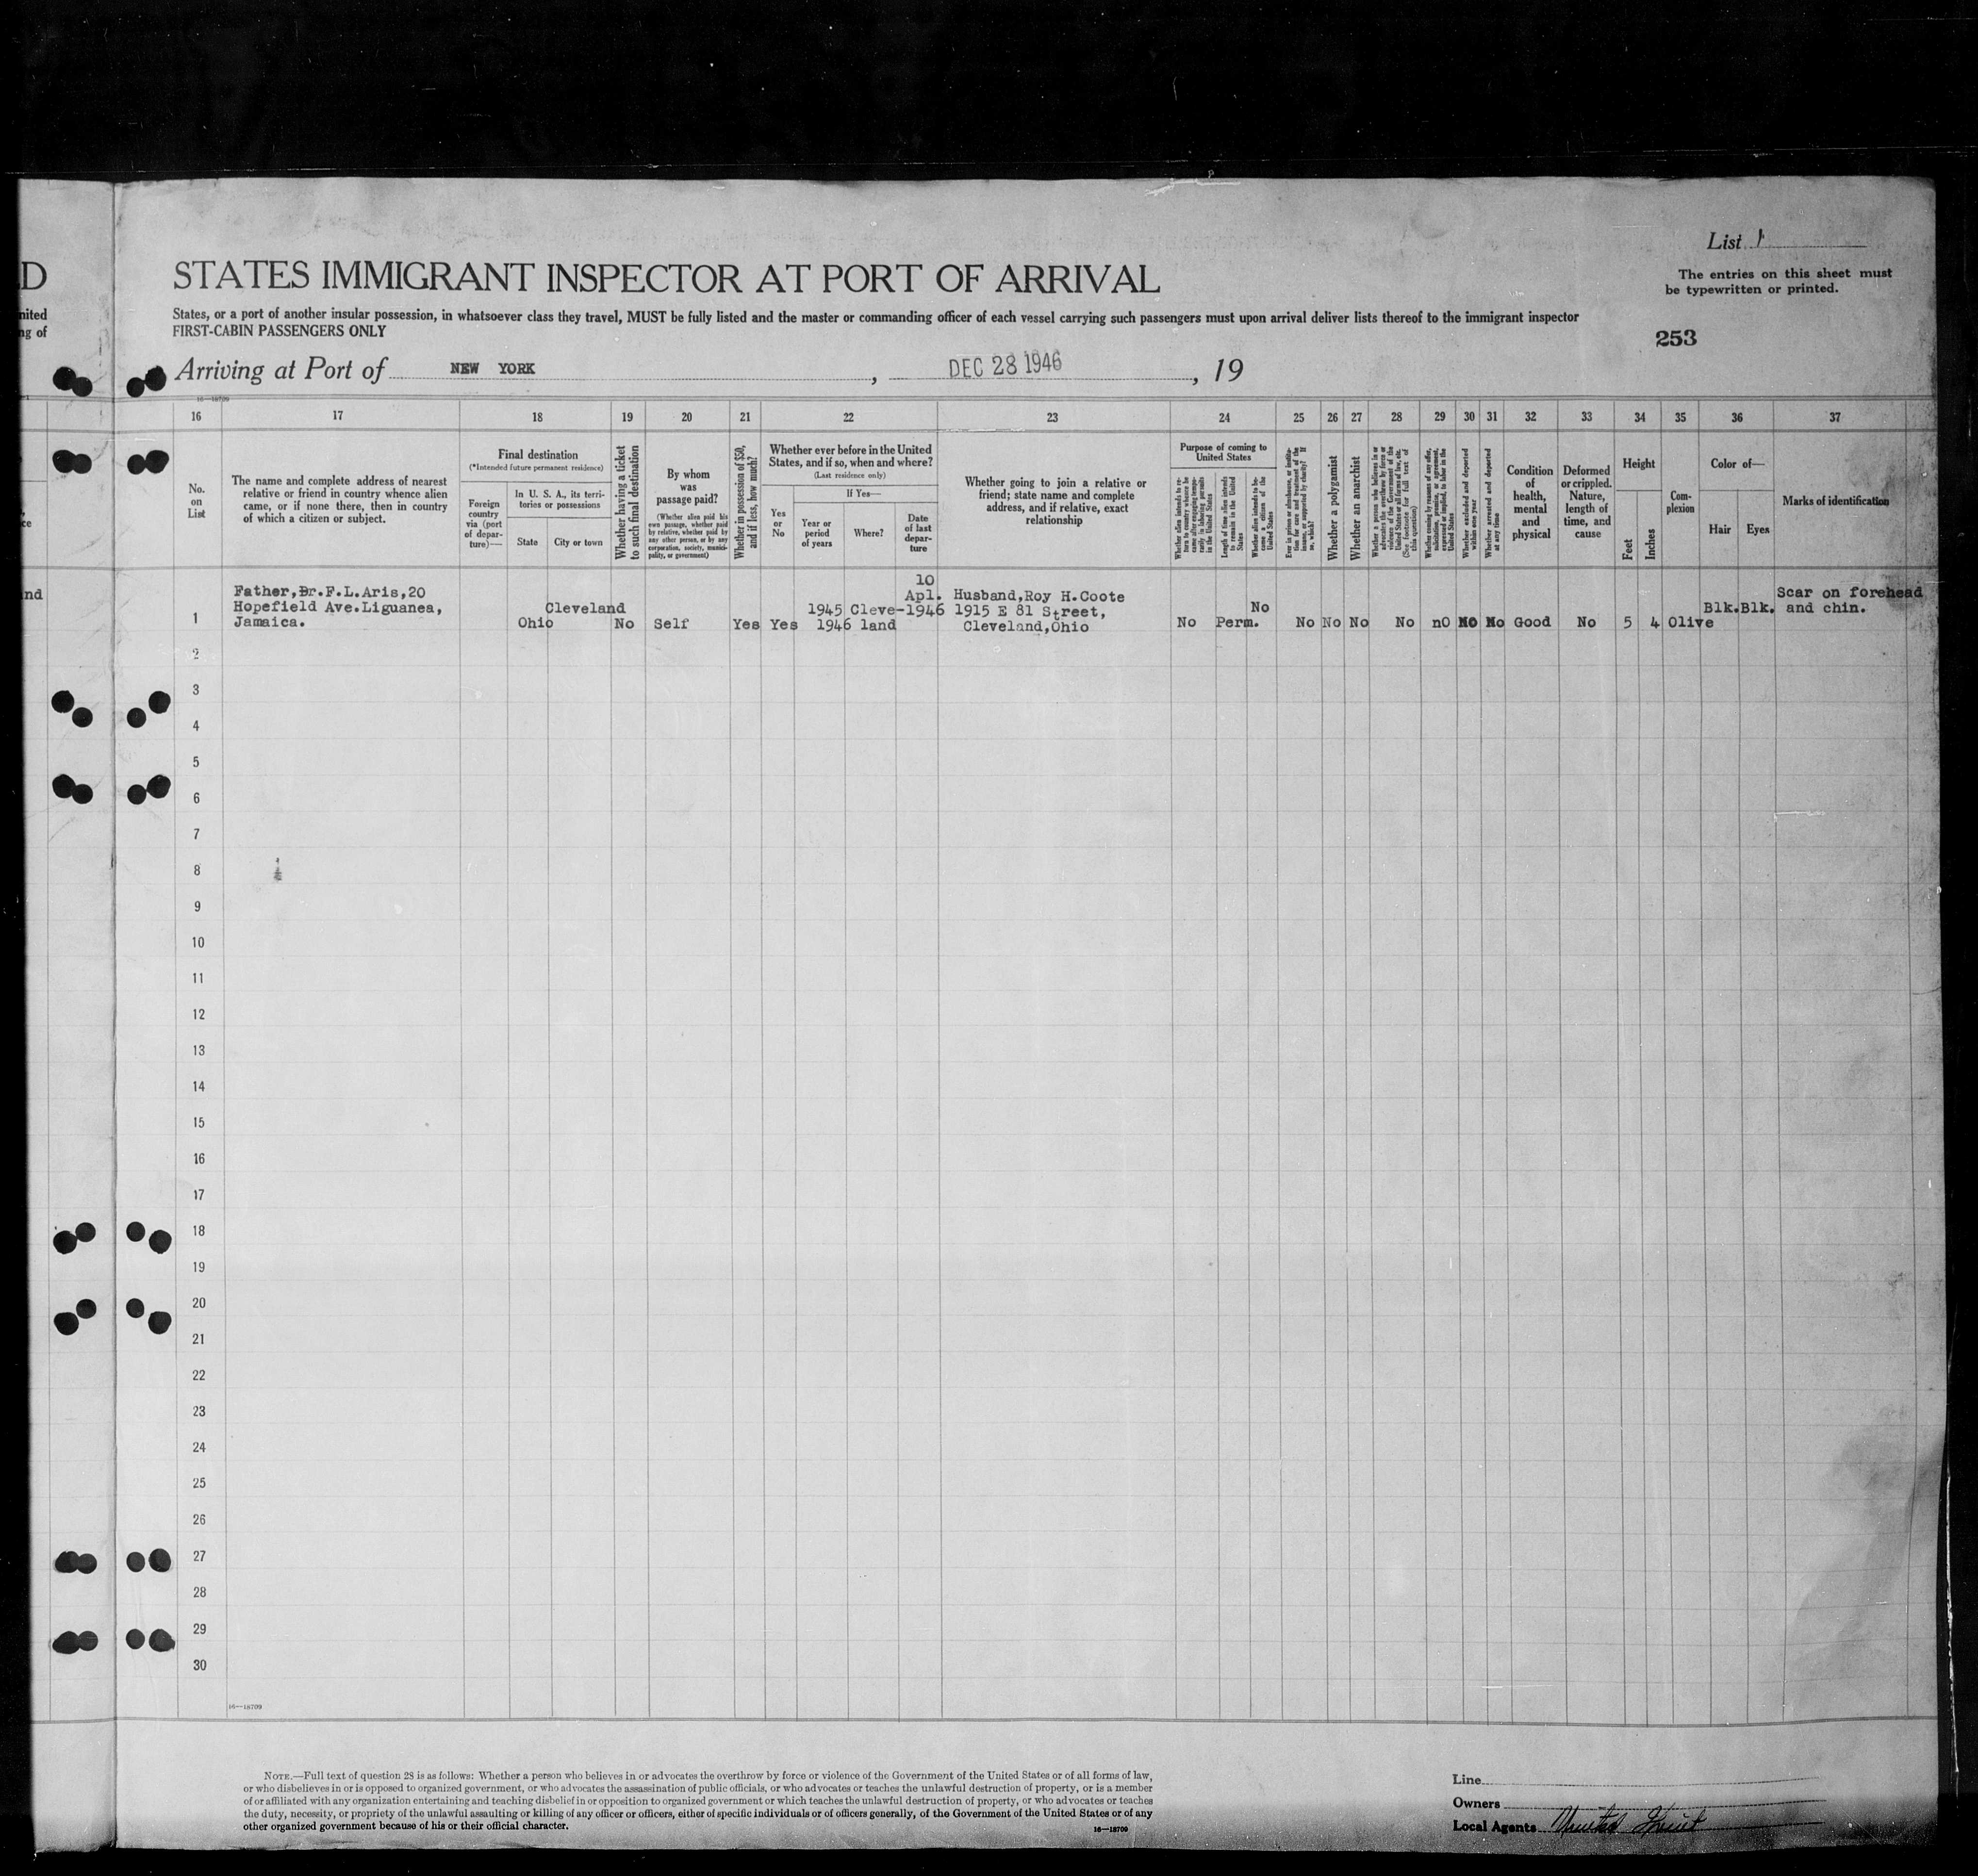 D
nited
ng of
nd
List 1
The entries on this sheet must
be typewritten or printed.
STATES IMMIGRANT INSPECTOR AT PORT OF ARRIVAL
States, or a port of another insular possession, in whatsoever class they travel, MUST be fully listed and the master or commanding officer of each vessel carrying such passengers must upon arrival deliver lists thereof to the immigrant inspector
FIRST-CABIN PASSENGERS ONLY
253
Arriving at Port of NEW YORK, DEC 28 1946, 19
16—18709
16 17 18 19 20 21 22 23 24 25 26 27 28 29 30 31 32 33 34 35 36 37
No.
on
List
The name and complete address of nearest
relative or friend in country whence alien
came, or if none there, then in country
of which a citizen or subject.
Final destination
(*Intended future permanent residence)
Foreign
country
via (port
of depar-
ture)—
In U. S. A., its terri-
tories or possessions
State
City or town
Whether having a ticket
to such final destination
By whom
was
passage paid?
(Whether alien paid his
own passage, whether paid
by relative, whether paid by
any other person, or by any
corporation, society, munici-
pality, or government)
Whether in possession of $50,
and if less, how much?
Whether ever before in the United
States, and if so, when and where?
(Last residence only)
Yes
or
No
If Yes—
Year or
period
of years
Where?
Date
of last
depar-
ture
Whether going to join a relative or
friend; state name and complete
address, and if relative, exact
relationship
Purpose of coming to
United States
Whether alien intends to re-
turn to country whence he
came after engaging tempo-
rarily in laboring pursuits
in the United States
Length of time alien intends
to remain in the United
States
Whether alien intends to be-
come a citizen of the
United States
Ever in prison or almshouse, or institu-
tion for care and treatment of the
insane, or supported by charity? If
so, which?
Whether a polygamist
Whether an anarchist
Whether a person who believes in or
advocates the overthrow by force or
violence of the Government of the
United States or all forms of law, etc.
(See footnote for full text of
this question)
Whether coming by reason of any offer,
solicitation, promise, or agreement,
expressed or implied, to labor in the
United States
Whether excluded and deported
within one year
Whether arrested and deported
at any time
Condition
of
health,
mental
and
physical
Deformed
or crippled.
Nature,
length of
time, and
cause
Height
Feet
Inches
Com-
plexion
Color of—
Hair
Eyes
Marks of identification
1
Father, Dr.F.L.Aris,20
Hopefield Ave.Liguanea,
Jamaica.
Ohio
Cleveland
No
Self
Yes
Yes
1945
1946
Cleve-
land
10
Apl.
1946
Husband,Roy H.Coote
1915 E 81 Street,
Cleveland,Ohio
No
Perm.
No
No
No
No
No
nO
NO
No
Good
No
5
4
Olive
Blk.
Blk.
Scar on forehead
and chin.
2
3
4
5
6
7
8
9
10
11
12
13
14
15
16
17
18
19
20
21
22
23
24
25
26
27
28
29
30
16—18709
NOTE.—Full text of question 28 is as follows: Whether a person who believes in or advocates the overthrow by force or violence of the Government of the United States or of all forms of law,
or who disbelieves in or is opposed to organized government, or who advocates the assassination of public officials, or who advocates or teaches the unlawful destruction of property, or is a member
of or affiliated with any organization entertaining and teaching disbelief in or opposition to organized government or which teaches the unlawful destruction of property, or who advocates or teaches
the duty, necessity, or propriety of the unlawful assaulting or killing of any officer or officers, either of specific individuals or of officers generally, of the Government of the United States or of any
other organized government because of his or their official character.
16—18709
Line
Owners
Local Agents United Fruit